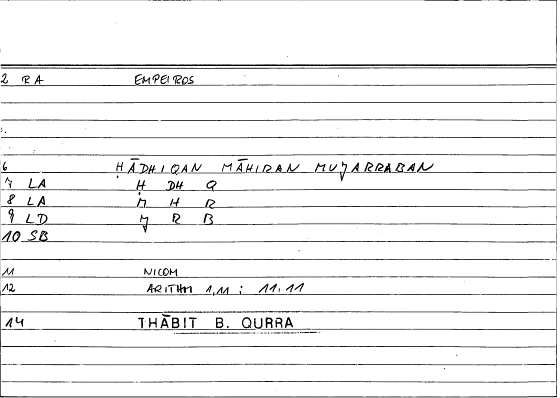 2 RA EMPEIROS
6 ḤĀDHIQAN MĀHIRAN MUJARRABAN
7 LA Ḥ DH Q
8 LA M H R
9 LD J R B
10 SB
11 NICOM
12 ARITHM 1,11 : 11.11
14 THĀBIT B. QURRA